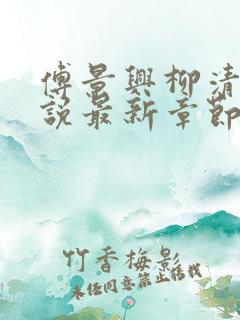 傅景兴柳清
说最新章节
竹香梅影
未经同意禁止转载